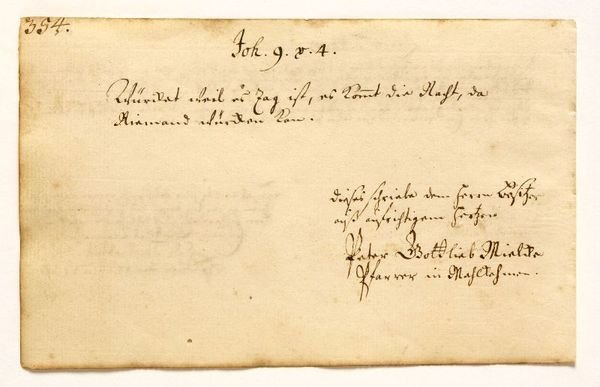 354.
Joh. 9. v. 4.
Würcket weil es Tag ist, es kommt die Nacht, da
Niemand würcken kan.
dieses schriebe dem Herrn Besitzer
auß aufrichtigem Hertzen
Peter Gottlieb Mielcke
Pfarrer in Mehlkehmen.